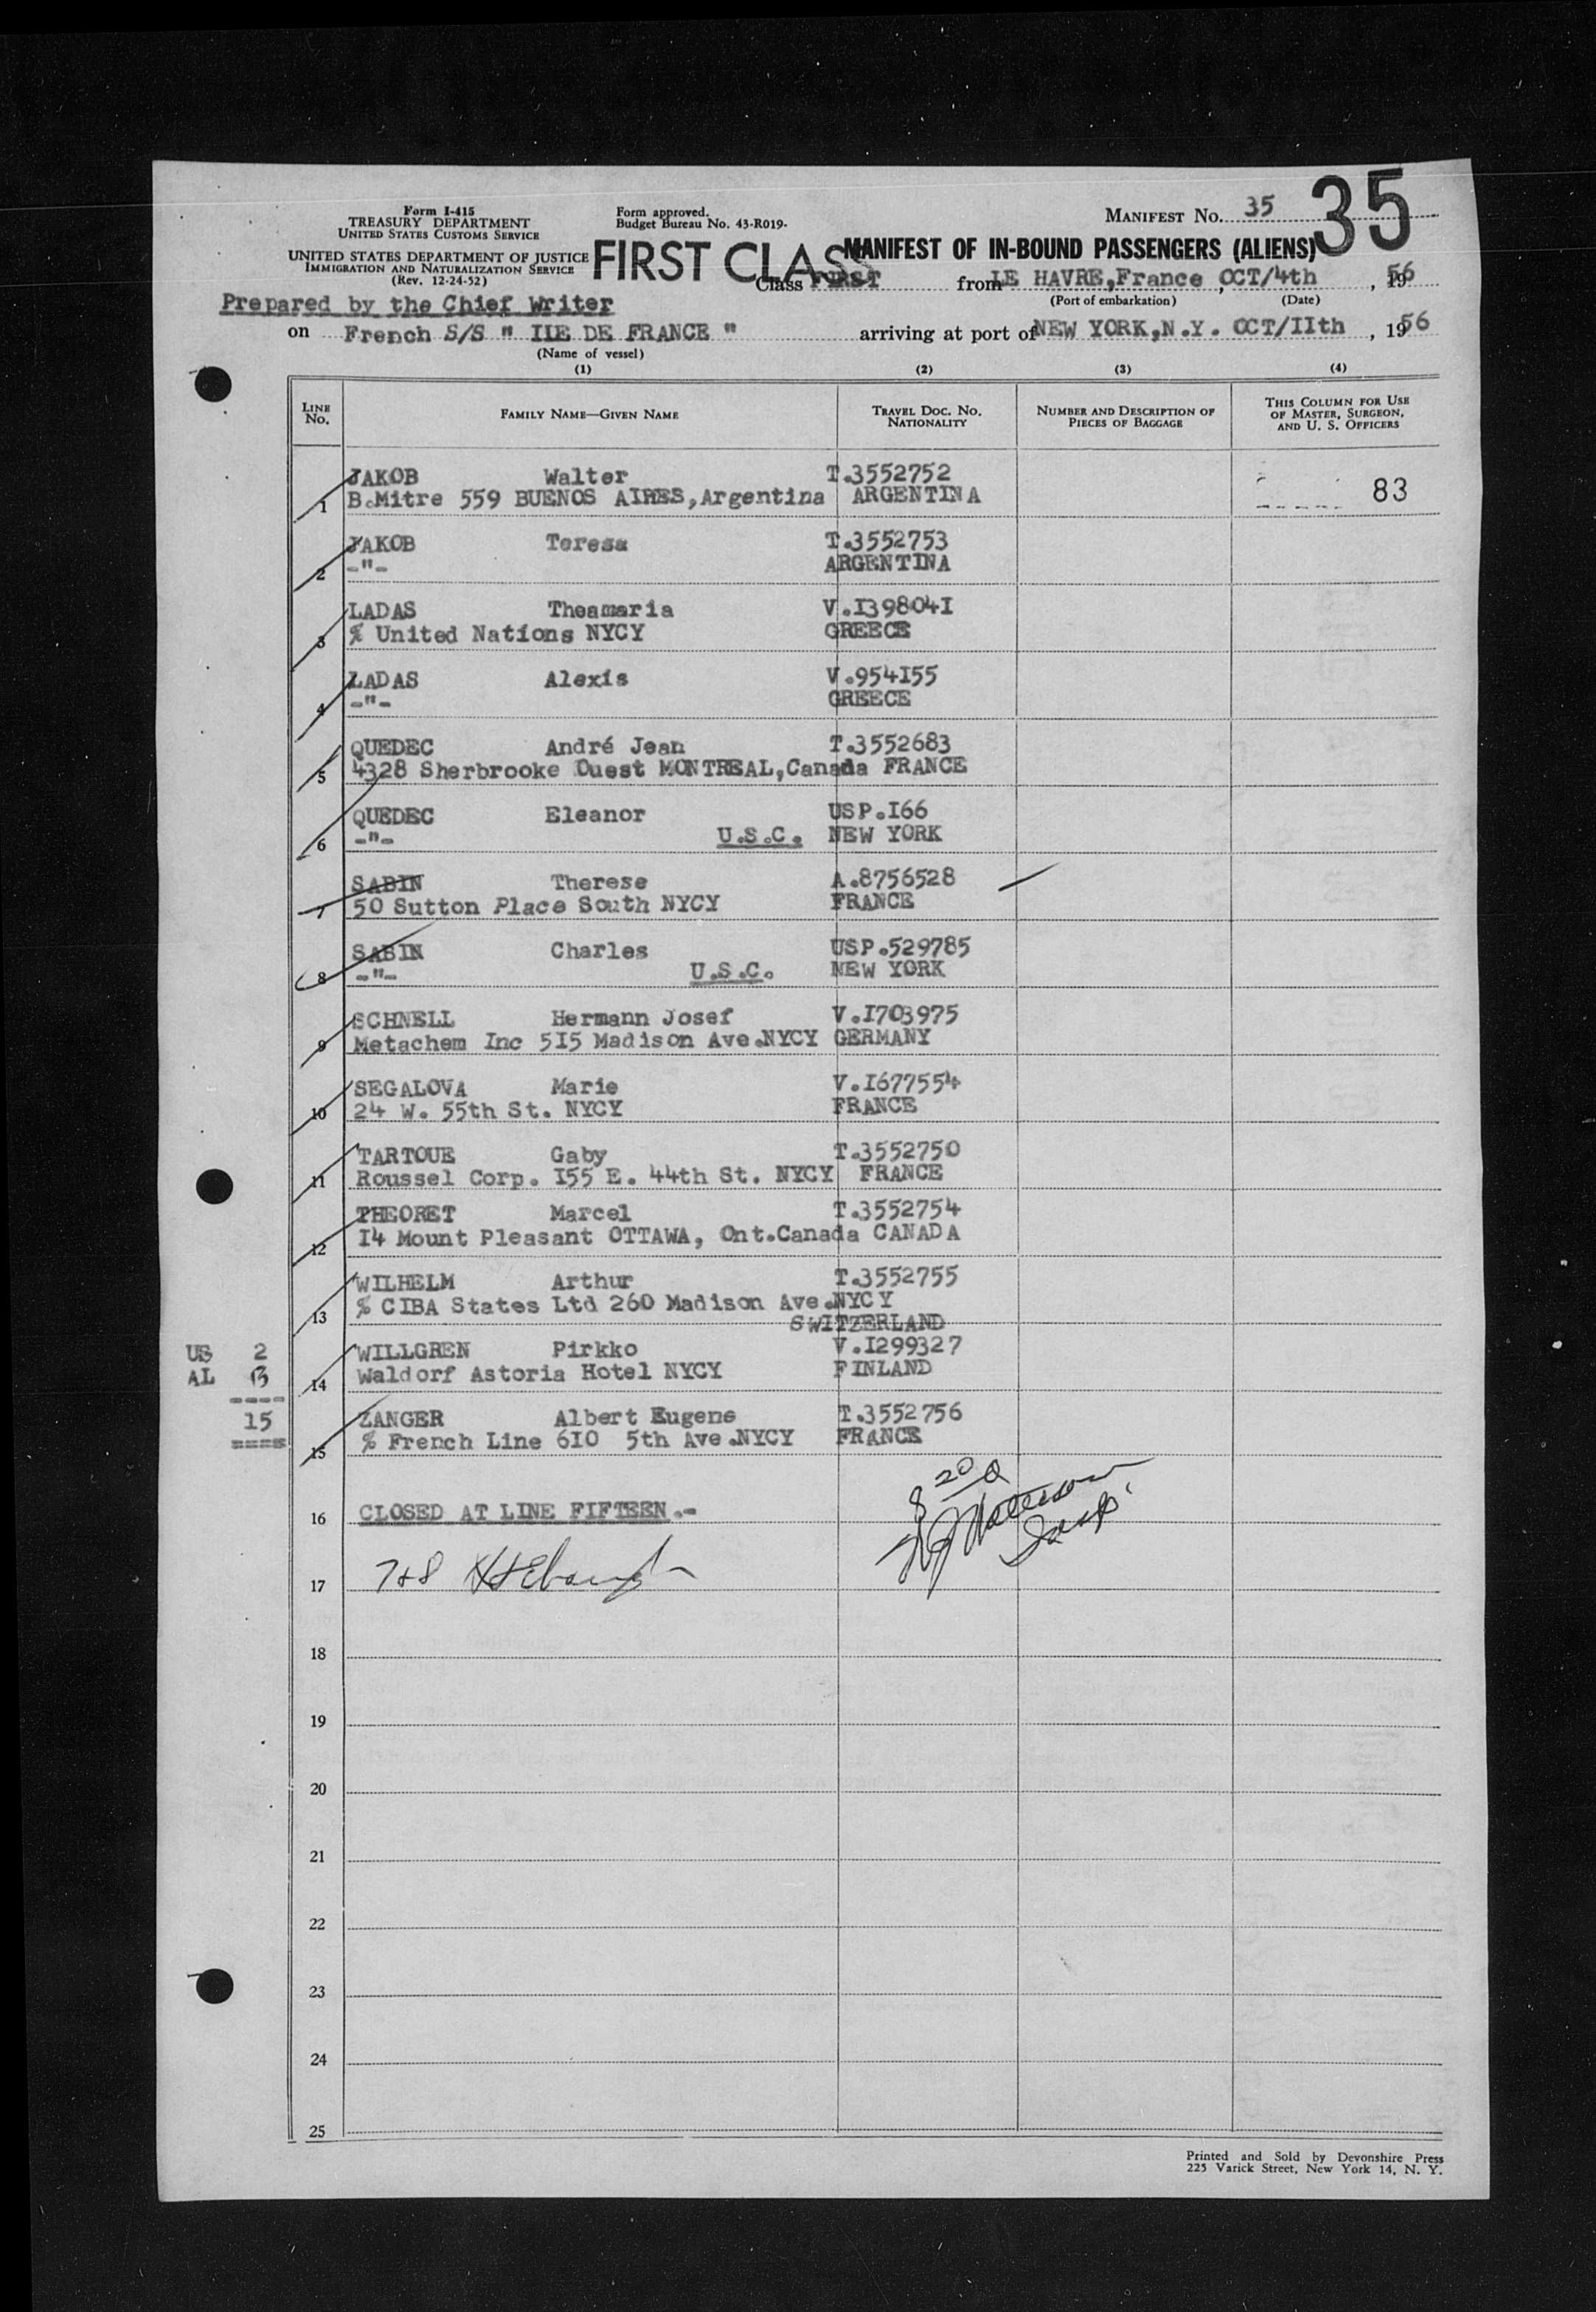 Form I-415
TREASURY DEPARTMENT
UNITED STATES CUSTOMS SERVICE
UNITED STATES DEPARTMENT OF JUSTICE
IMMIGRATION AND NATURALIZATION SERVICE
(Rev. 12-24-52)
Form approved.
Budget Bureau No. 43-R019-
MANIFEST No. 35
35
FIRST CLASS
MANIFEST OF IN-BOUND PASSENGERS (ALIENS)
Class FIRST from LE HAVRE,France , OCT/4th , 1956
(Port of embarkation) (Date)
Prepared by the Chief Writer
on French S/S " ILE DE FRANCE " arriving at port of NEW YORK,N.Y. OCT/IIth , 1956
(Name of vessel)
(1) (2) (3) (4)
LINE No. FAMILY NAME—GIVEN NAME TRAVEL DOC. No. NATIONALITY NUMBER AND DESCRIPTION OF PIECES OF BAGGAGE THIS COLUMN FOR USE OF MASTER, SURGEON, AND U. S. OFFICERS
JAKOB Walter T.3552752
1 B.Mitre 559 BUENOS AIRES,Argentina ARGENTINA 83
JAKOB Teresa T.3552753
2 -"- ARGENTINA
LADAS Theamaria V.I39804I
3 % United Nations NYCY GREECE
LADAS Alexis V.954I55
4 -"- GREECE
QUEDEC André Jean T.3552683
5 4328 Sherbrooke Ouest MONTREAL,Canada FRANCE
QUEDEC Eleanor USP.I66
6 -"- U.S.C. NEW YORK
SABIN Therese A.8756528
7 50 Sutton Place South NYCY FRANCE
SABIN Charles USP.529785
8 -"- U.S.C. NEW YORK
SCHNELL Hermann Josef V.I703975
9 Metachem Inc 5I5 Madison Ave.NYCY GERMANY
SEGALOVA Marie V.I677554
10 24 W. 55th St. NYCY FRANCE
TARTOUE Gaby T.3552750
11 Roussel Corp. I55 E. 44th St. NYCY FRANCE
THEORET Marcel T.3552754
12 I4 Mount Pleasant OTTAWA, Ont.Canada CANADA
WILHELM Arthur T.3552755
13 % CIBA States Ltd 260 Madison Ave.NYCY
SWITZERLAND
US 2 WILLGREN Pirkko V.I299327
AL 13 14 Waldorf Astoria Hotel NYCY FINLAND
15 ZANGER Albert Eugene T.3552756
15 % French Line 6I0 5th Ave.NYCY FRANCE
16 CLOSED AT LINE FIFTEEN.-
17 7+8
18
19
20
21
22
23
24
25
Printed and Sold by Devonshire Press
225 Varick Street, New York 14, N. Y.